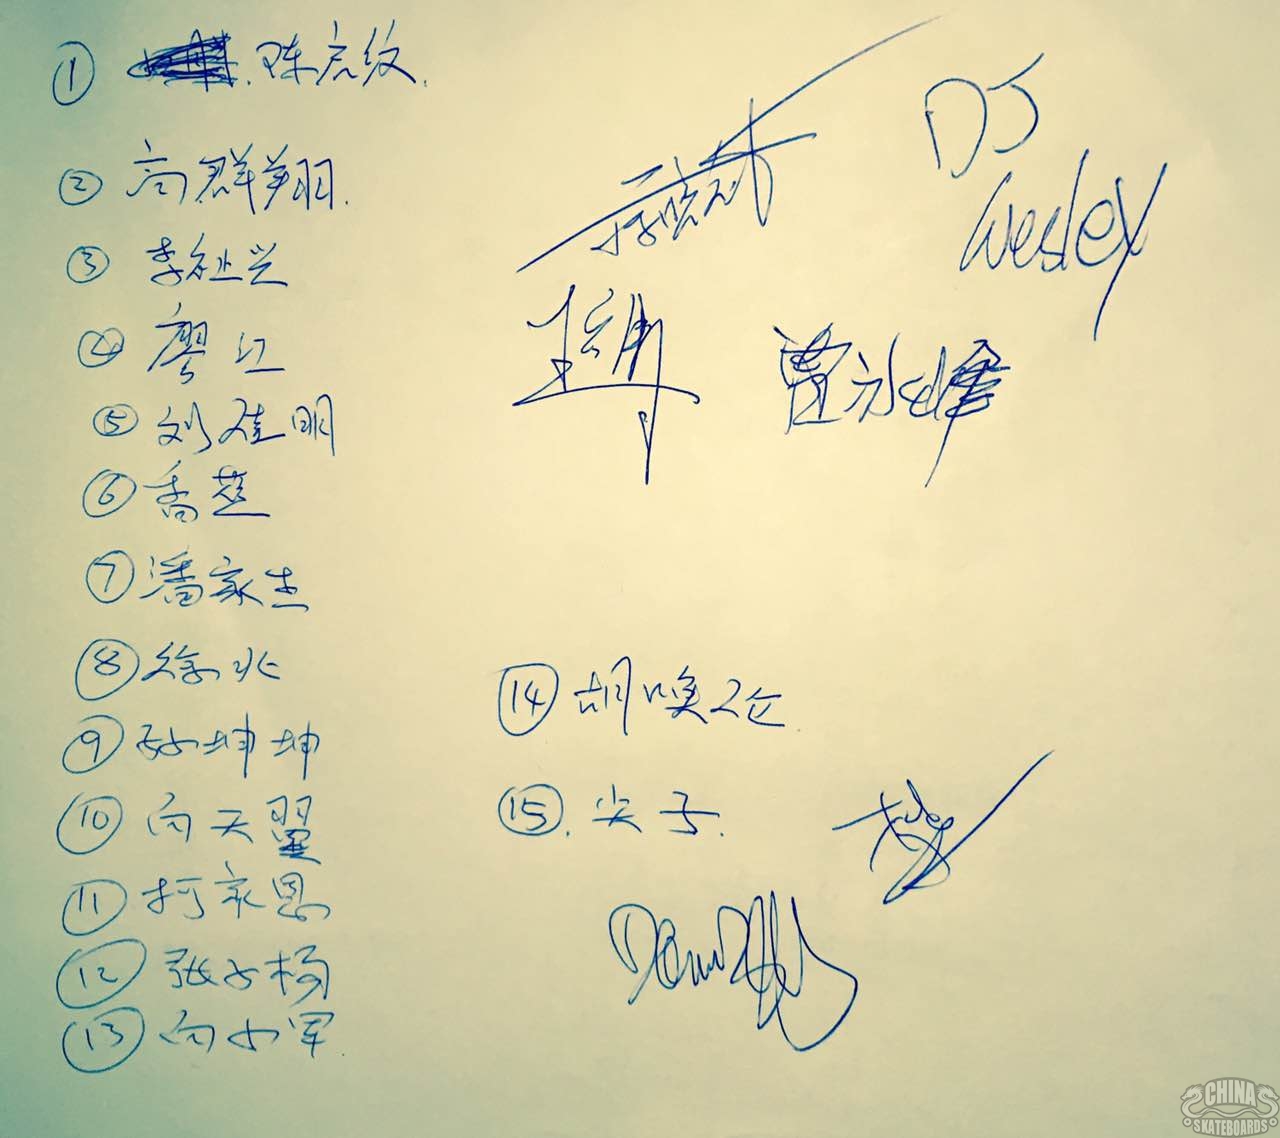 ① 陈宏纹.
② 高群翔.
③ 李祉兴
④ 廖江
⑤ 刘佳明
⑥ 乔芷
⑦ 潘家杰
⑧ 徐兆
⑨ 孙坤坤
⑩ 向天翼
⑪ 柯家恩
⑫ 张小杨
⑬ 向小军.
DJ
Wesley
曹永峰
⑭ 胡唤仑.
⑮. 尖子.
CHINA
SKATEBOARDS